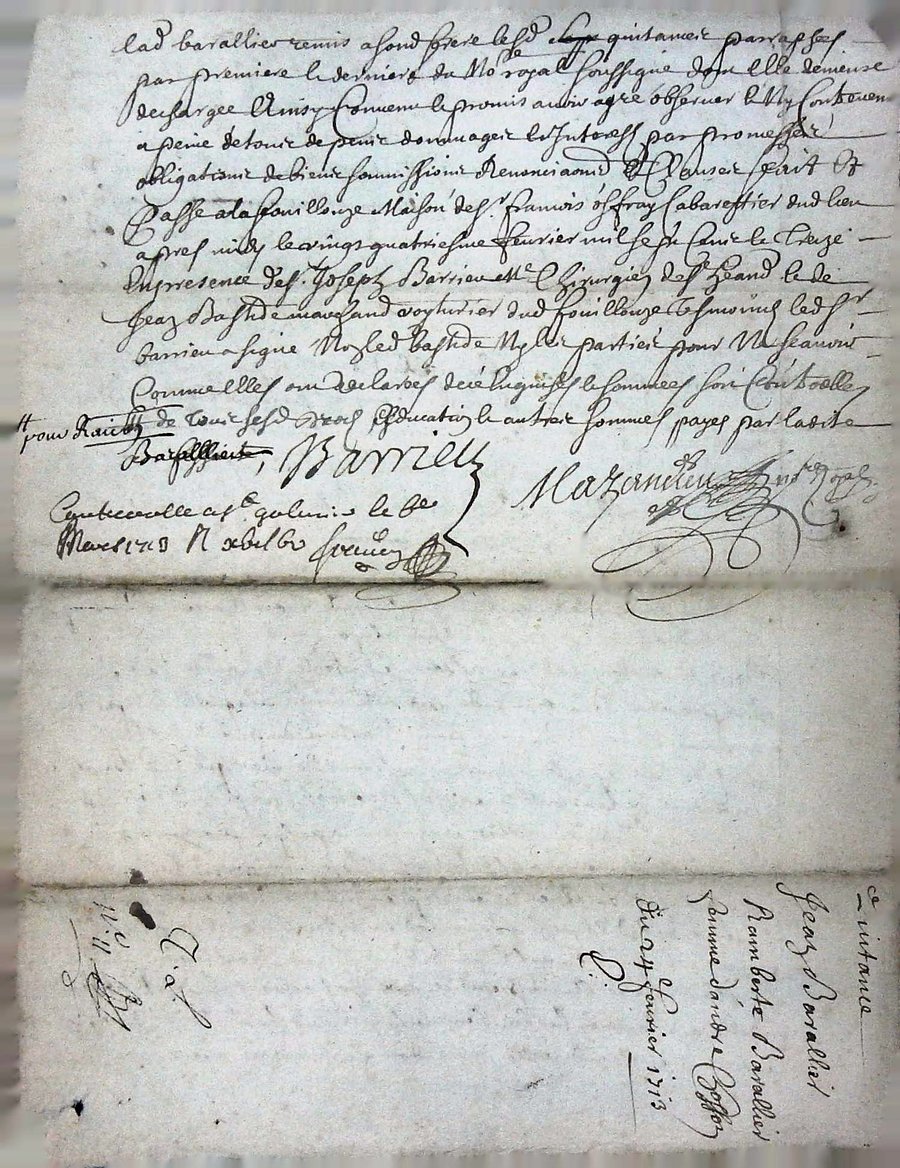 lad barallier remis a sond frere lesd quitances parraphees
par premiere & derniere du No.re royal soussigné dont elle demeure
dechargee Ainsy Convenu & promis avoir agré observer & Ny Contrevenir
a peine de tous depens dommages & Interests par promesses
obligations de biens soumissions Renonciaons & Clauses fait Et
Passé a la fouillouze Maison de Sr. francois Cabarettier dud lieu
apres midy le vingt quatriesme fevrier mil sept Cent & Treze
En presence de Sr. Joseph Barrieu Me Chirurgien de St heand & de
Jean Bastide marchand voyturier dud fouillouze Tesmoings led Sr
barrieu a signé Non led bastide Ny les parties pour Ne scavoir
Comme Elles ont declarés de ce Enquises & sommees
de tous sesd Education & autres sommes payes par ladite
pour
Barallier
Barrieu
No.re Royal
Contrerolle a St galmier le 6e
Mars 1713 R
Quitance
Jean Barallier
Ramberte Barallier
femme dandre
Du 24e fevrier 1713
No 11